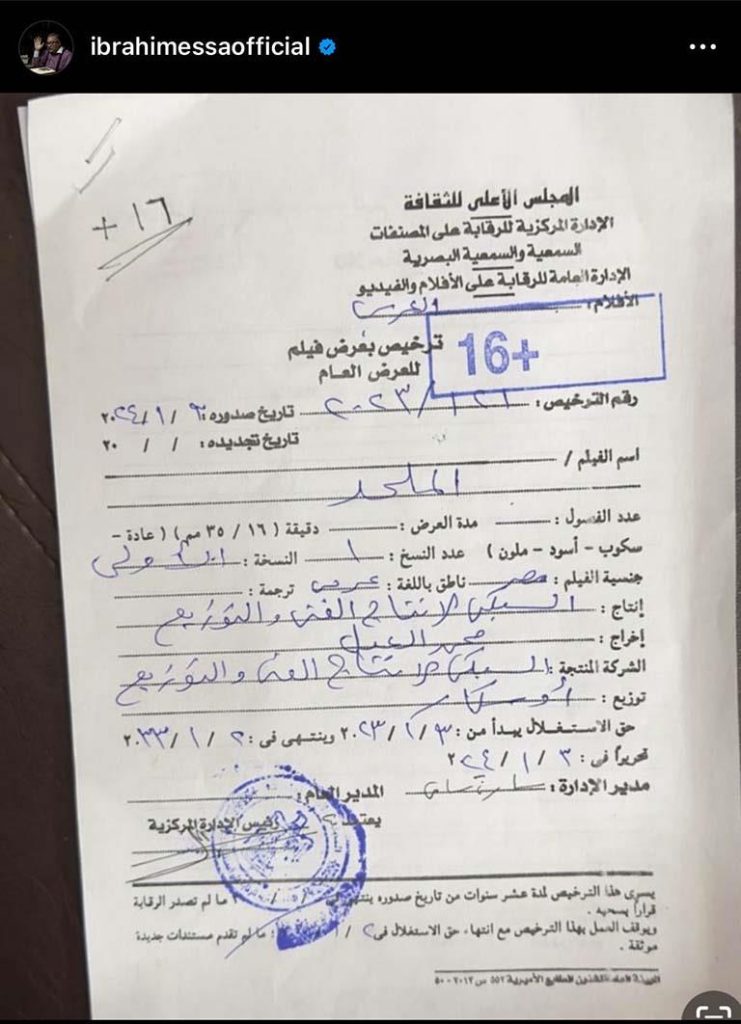 ibrahimessaofficial
+١٦
المجلس الأعلى للثقافة
الإدارة المركزية للرقابة على المصنفات
السمعية والسمعية البصرية
الإدارة العامة للرقابة على الأفلام والفيديو
الأفلام:
16+
ترخيص بعرض فيلم
للعرض العام
رقم الترخيص : ١٢٦/٢٠٢٣ تاريخ صدوره :
تاريخ تجديده : / / ٢٠
اسم الفيلم /
الملحد
عدد الفصول : مدة العرض : دقيقة ( ١٦ / ٣٥ مم ) ( عادة -
سكوب - أسود - ملون ) عدد النسخ : ١ النسخة : الأولى
جنسية الفيلم : مصر ناطق باللغة : عربى ترجمة :
إنتاج : السبكى للانتاج الفنى والتوزيع
إخراج : محمد العدل
الشركة المنتجة : السبكى للانتاج الفنى والتوزيع
توزيع : أوسكار
حق الاستغلال يبدأ من : ٣ / ١ / ٢٠٢٣ وينتهى فى : ٢ / ١ / ٢٠٣٣
تحريراً فى : ٣ / ١ / ٢٠٢٤
مدير الإدارة : المدير العام :
يعتمد
رئيس الإدارة المركزية
يسرى هذا الترخيص لمدة عشر سنوات من تاريخ صدوره ينتهى فى ما لم تصدر الرقابة
قراراً بسحبه .
ويوقف العمل بهذا الترخيص مع انتهاء حق الاستغلال فى ما لم تقدم مستندات جديدة
موثقة .
الهيئة العامة لشئون المطابع الأميرية